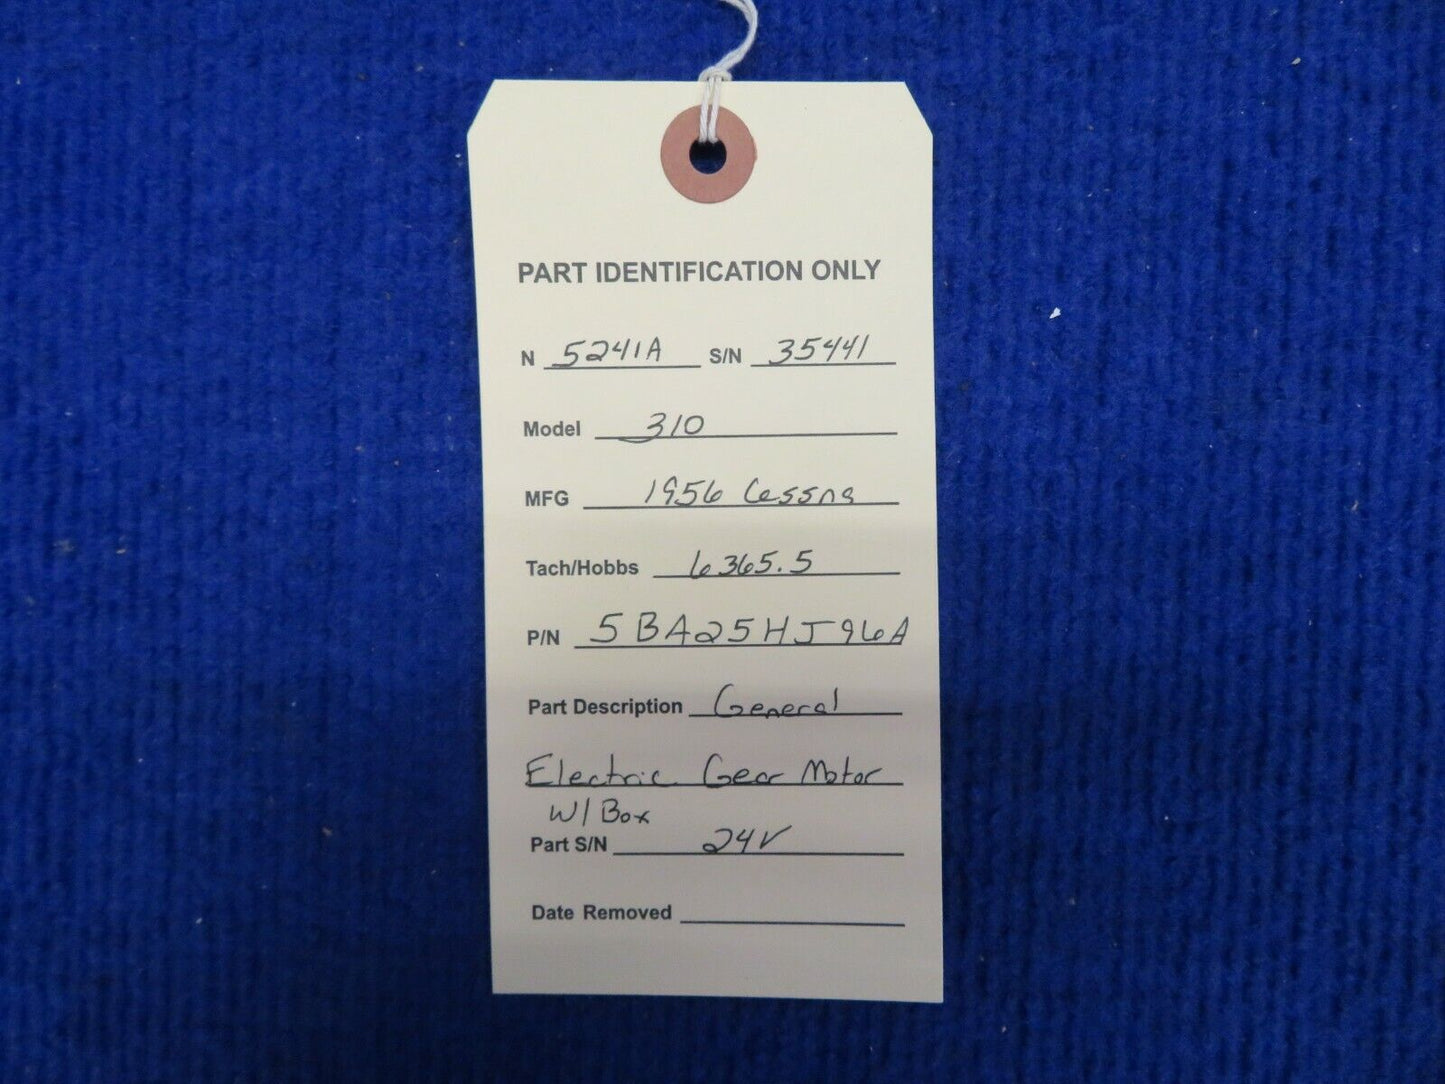 PART IDENTIFICATION ONLY
N 5241A S/N 35441
Model 310
MFG 1956 Cessna
Tach/Hobbs 6365.5
P/N 5BA25HJ96A
Part Description General
Electric Gear Motor
W/ Box
Part S/N 24V
Date Removed